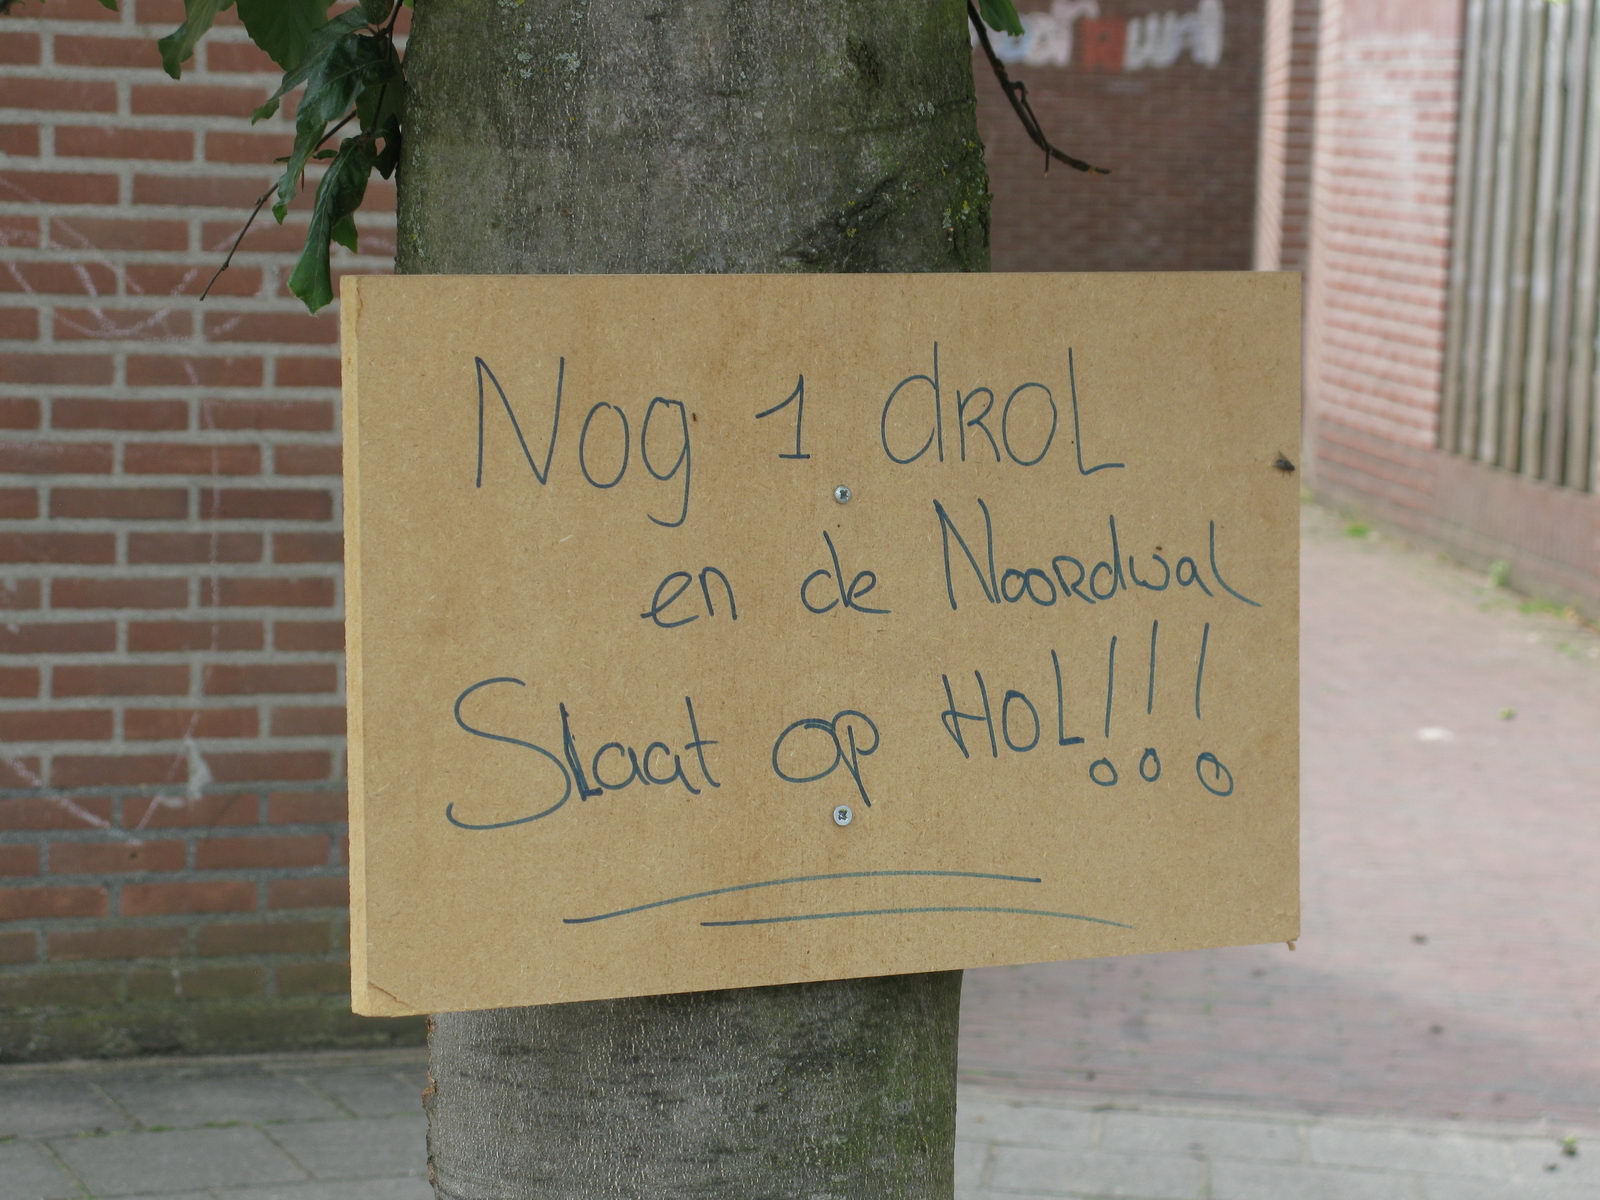 Nog 1 dROL
en de Noordwal
Slaat op HOL!!!